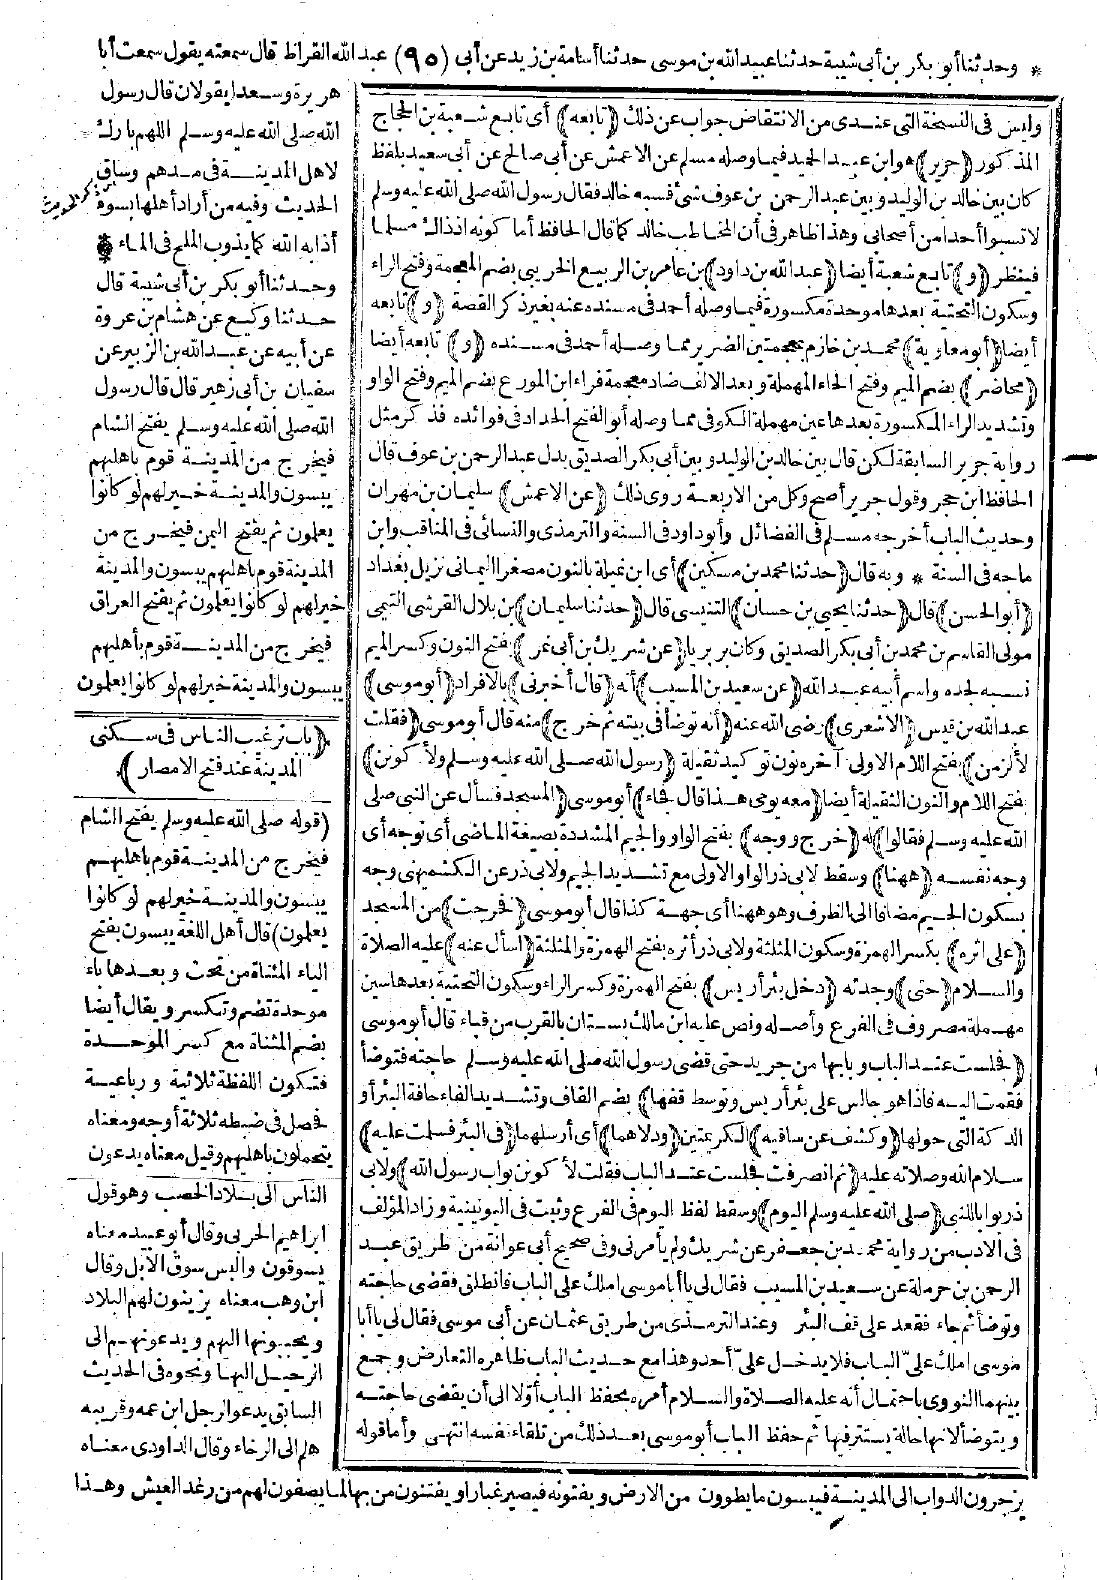 * وحدثنا أبو بكر بن أبي شيبة حدثنا عبيد الله بن موسى حدثنا أسامة بن زيد عن أبي (٩٥) عبد الله القراظ قال سمعته يقول سمعت أبا
هريرة وسعدا يقولان قال رسول
الله صلى الله عليه وسلم اللهم بارك
لاهل المدينة في مدهم وساق
الحديث وفيه من أراد أهلها بسوء
أذابه الله كما يذوب الملح في الماء *
وحدثنا أبو بكر بن أبي شيبة قال
حدثنا وكيع عن هشام بن عروة
عن أبيه عن عبد الله بن الزبير عن
سفيان بن أبي زهير قال قال رسول
الله صلى الله عليه وسلم يفتح الشام
فيخرج من المدينة قوم باهليهم
يبسون والمدينة خير لهم لو كانوا
يعلمون ثم يفتح اليمن فيخرج من
المدينة قوم باهليهم يبسون والمدينة
خير لهم لو كانوا يعلمون ثم يفتح العراق
فيخرج من المدينة قوم بأهليهم
يبسون والمدينة خير لهم لو كانوا يعلمون
﴿باب ترغيب الناس في سكنى
المدينة عند فتح الامصار﴾
(قوله صلى الله عليه وسلم يفتح الشام
فيخرج من المدينة قوم باهليهم
يبسون والمدينة خير لهم لو كانوا
يعلمون) قال أهل اللغة يبسون بفتح
الياء المثناة من تحت وبعدها باء
موحدة تضم وتكسر ويقال أيضا
بضم المثناة مع كسر الموحدة
فتكون اللفظة ثلاثية ورباعية
فحصل في ضبطه ثلاثة أوجه ومعناه
يتحملون باهليهم وقيل معناه يدعون
الناس الى بلاد الخصب وهو قول
ابراهيم الحربي وقال أبو عبيد معناه
يسوقون والبس سوق الابل وقال
ابن وهب معناه يزينون لهم البلاد
ويحببونها اليهم ويدعونهم الى
الرحيل اليها ونحوه في الحديث
السابق يدعو الرجل ابن عمه وقريبه
هلم الى الرخاء وقال الداودي معناه
وليس في النسخة التي عندي من الانتقاض جواب عن ذلك ﴿تابعه﴾ أي تابع شعبة بن الحجاج
المذكور ﴿جرير﴾ هو ابن عبد الحميد فيما وصله مسلم عن الاعمش عن أبي صالح عن أبي سعيد بلفظ
كان بين خالد بن الوليد وبين عبد الرحمن بن عوف شئ فسبه خالد فقال رسول الله صلى الله عليه وسلم
لا تسبوا أحدا من أصحابي وهذا ظاهر في أن المخاطب خالد كما قال الحافظ أما كونه اذ ذاك مسلما
فينظر ﴿و﴾ تابع شعبة أيضا ﴿عبد الله بن داود﴾ بن عامر بن الربيع الخريبي بضم المعجمة وفتح الراء
وسكون التحتية بعدها موحدة مكسورة فيما وصله أحمد في مسنده عنه بغير ذكر القصة ﴿و﴾ تابعه
أيضا ﴿أبو معاوية﴾ محمد بن خازم بمعجمتين الضرير مما وصله أحمد في مسنده ﴿و﴾ تابعه أيضا
﴿محاضر﴾ بضم الميم وفتح الحاء المهملة وبعد الالف ضاد معجمة فراء ابن المورع بضم الميم وفتح الواو
وتشديد الراء المكسورة بعدها عين مهملة الكوفي مما وصله أبو الفتح الحداد في فوائده فذكر مثل
رواية جرير السابقة لكن قال بين خالد بن الوليد وبين أبي بكر الصديق بدل عبد الرحمن بن عوف قال
الحافظ ابن حجر وقول جرير أصح وكل من الاربعة روى ذلك ﴿عن الاعمش﴾ سليمان بن مهران
وحديث الباب أخرجه مسلم في الفضائل وأبو داود في السنة والترمذي والنسائي في المناقب وابن
ماجه في السنة * وبه قال ﴿حدثنا محمد بن مسكين﴾ أي ابن نميلة بالنون مصغرا اليماني نزيل بغداد
﴿أبو الحسن﴾ قال ﴿حدثنا يحيى بن حسان﴾ التنيسي قال ﴿حدثنا سليمان﴾ بن بلال القرشي التيمي
مولى القاسم بن محمد بن أبي بكر الصديق وكان بربريا ﴿عن شريك بن أبي نمر﴾ بفتح النون وكسر الميم
نسبه لجده واسم أبيه عبد الله ﴿عن سعيد بن المسيب﴾ أنه ﴿قال أخبرني﴾ بالافراد ﴿أبو موسى﴾
عبد الله بن قيس ﴿الاشعري﴾ رضي الله عنه ﴿أنه توضأ في بيته ثم خرج﴾ منه قال أبو موسى ﴿فقلت
لألزمن﴾ بفتح اللام الاولى آخره نون توكيد ثقيلة ﴿رسول الله صلى الله عليه وسلم ولأكونن﴾
بفتح اللام والنون الثقيلة أيضا ﴿معه يومي هذا قال فجاء﴾ أبو موسى ﴿المسجد فسأل عن النبي صلى
الله عليه وسلم فقالوا﴾ له ﴿خرج ووجه﴾ بفتح الواو والجيم المشددة بصيغة الماضي أي توجه أي
وجه نفسه ﴿ههنا﴾ وسقط لابي ذر الواو الاولى مع تشديد الجيم ولابي ذر عن الكشميهني وجه
بسكون الجيم مضافا الى الظرف وهو ههنا أي جهة كذا قال أبو موسى ﴿فخرجت﴾ من المسجد
﴿على اثره﴾ بكسر الهمزة وسكون المثلثة ولابي ذر أثره بفتح الهمزة والمثلثة ﴿اسأل عنه﴾ عليه الصلاة
والسلام ﴿حتى﴾ وجدته ﴿دخل بئر أريس﴾ بفتح الهمزة وكسر الراء وسكون التحتية بعدها سين
مهملة مصروف في الفرع وأصله ونص عليه ابن مالك بستان بالقرب من قباء قال أبو موسى
﴿فجلست عند الباب وبابها من جريد حتى قضى رسول الله صلى الله عليه وسلم حاجته فتوضأ
فقمت اليه فاذا هو جالس على بئر أريس وتوسط قفها﴾ بضم القاف وتشديد الفاء حافة البئر أو
الدكة التي حولها ﴿وكشف عن ساقيه﴾ الكريمتين ﴿ودلاهما﴾ أي أرسلهما ﴿في البئر فسلمت عليه﴾
سلام الله وصلاته عليه ﴿ثم انصرفت فجلست عند الباب فقلت لأكونن بواب رسول الله﴾ ولابي
ذر بوابا للنبي ﴿صلى الله عليه وسلم اليوم﴾ وسقط لفظ اليوم في الفرع وثبت في اليونينية وزاد المؤلف
في الادب من رواية محمد بن جعفر عن شريك ولم يأمرني وفي صحيح أبي عوانة من طريق عبد
الرحمن بن حرملة عن سعيد بن المسيب فقال لي يا أبا موسى املك على الباب فانطلق فقضى حاجته
وتوضأ ثم جاء فقعد على قف البئر وعند الترمذي من طريق عثمان عن أبي موسى فقال لي يا أبا
موسى املك علىّ الباب فلا يدخل علىّ أحد وهذا مع حديث الباب ظاهره التعارض وجمع
بينهما النووي باحتمال أنه عليه الصلاة والسلام أمره بحفظ الباب أوّلا الى أن يقضي حاجته
ويتوضأ لانها حالة يستتر فيها ثم حفظ الباب أبو موسى بعد ذلك من تلقاء نفسه انتهى وأما قوله
يزجرون الدواب الى المدينة فيبسون ما يطؤون من الارض ويفتونه فيصير غبارا ويفتنون من بها لما يصفون لهم من رغد العيش وهذا